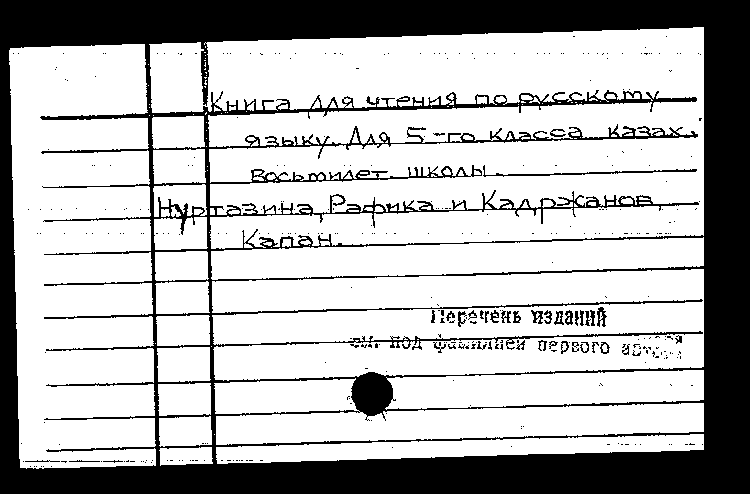 Книга для чтения по русскому
языку. Для 5-го класса казах.
восьмилет. школы.
Нуртазина, Рафика и Кадржанов,
Капан.
Перечень изданий
см. под фамилией первого автора